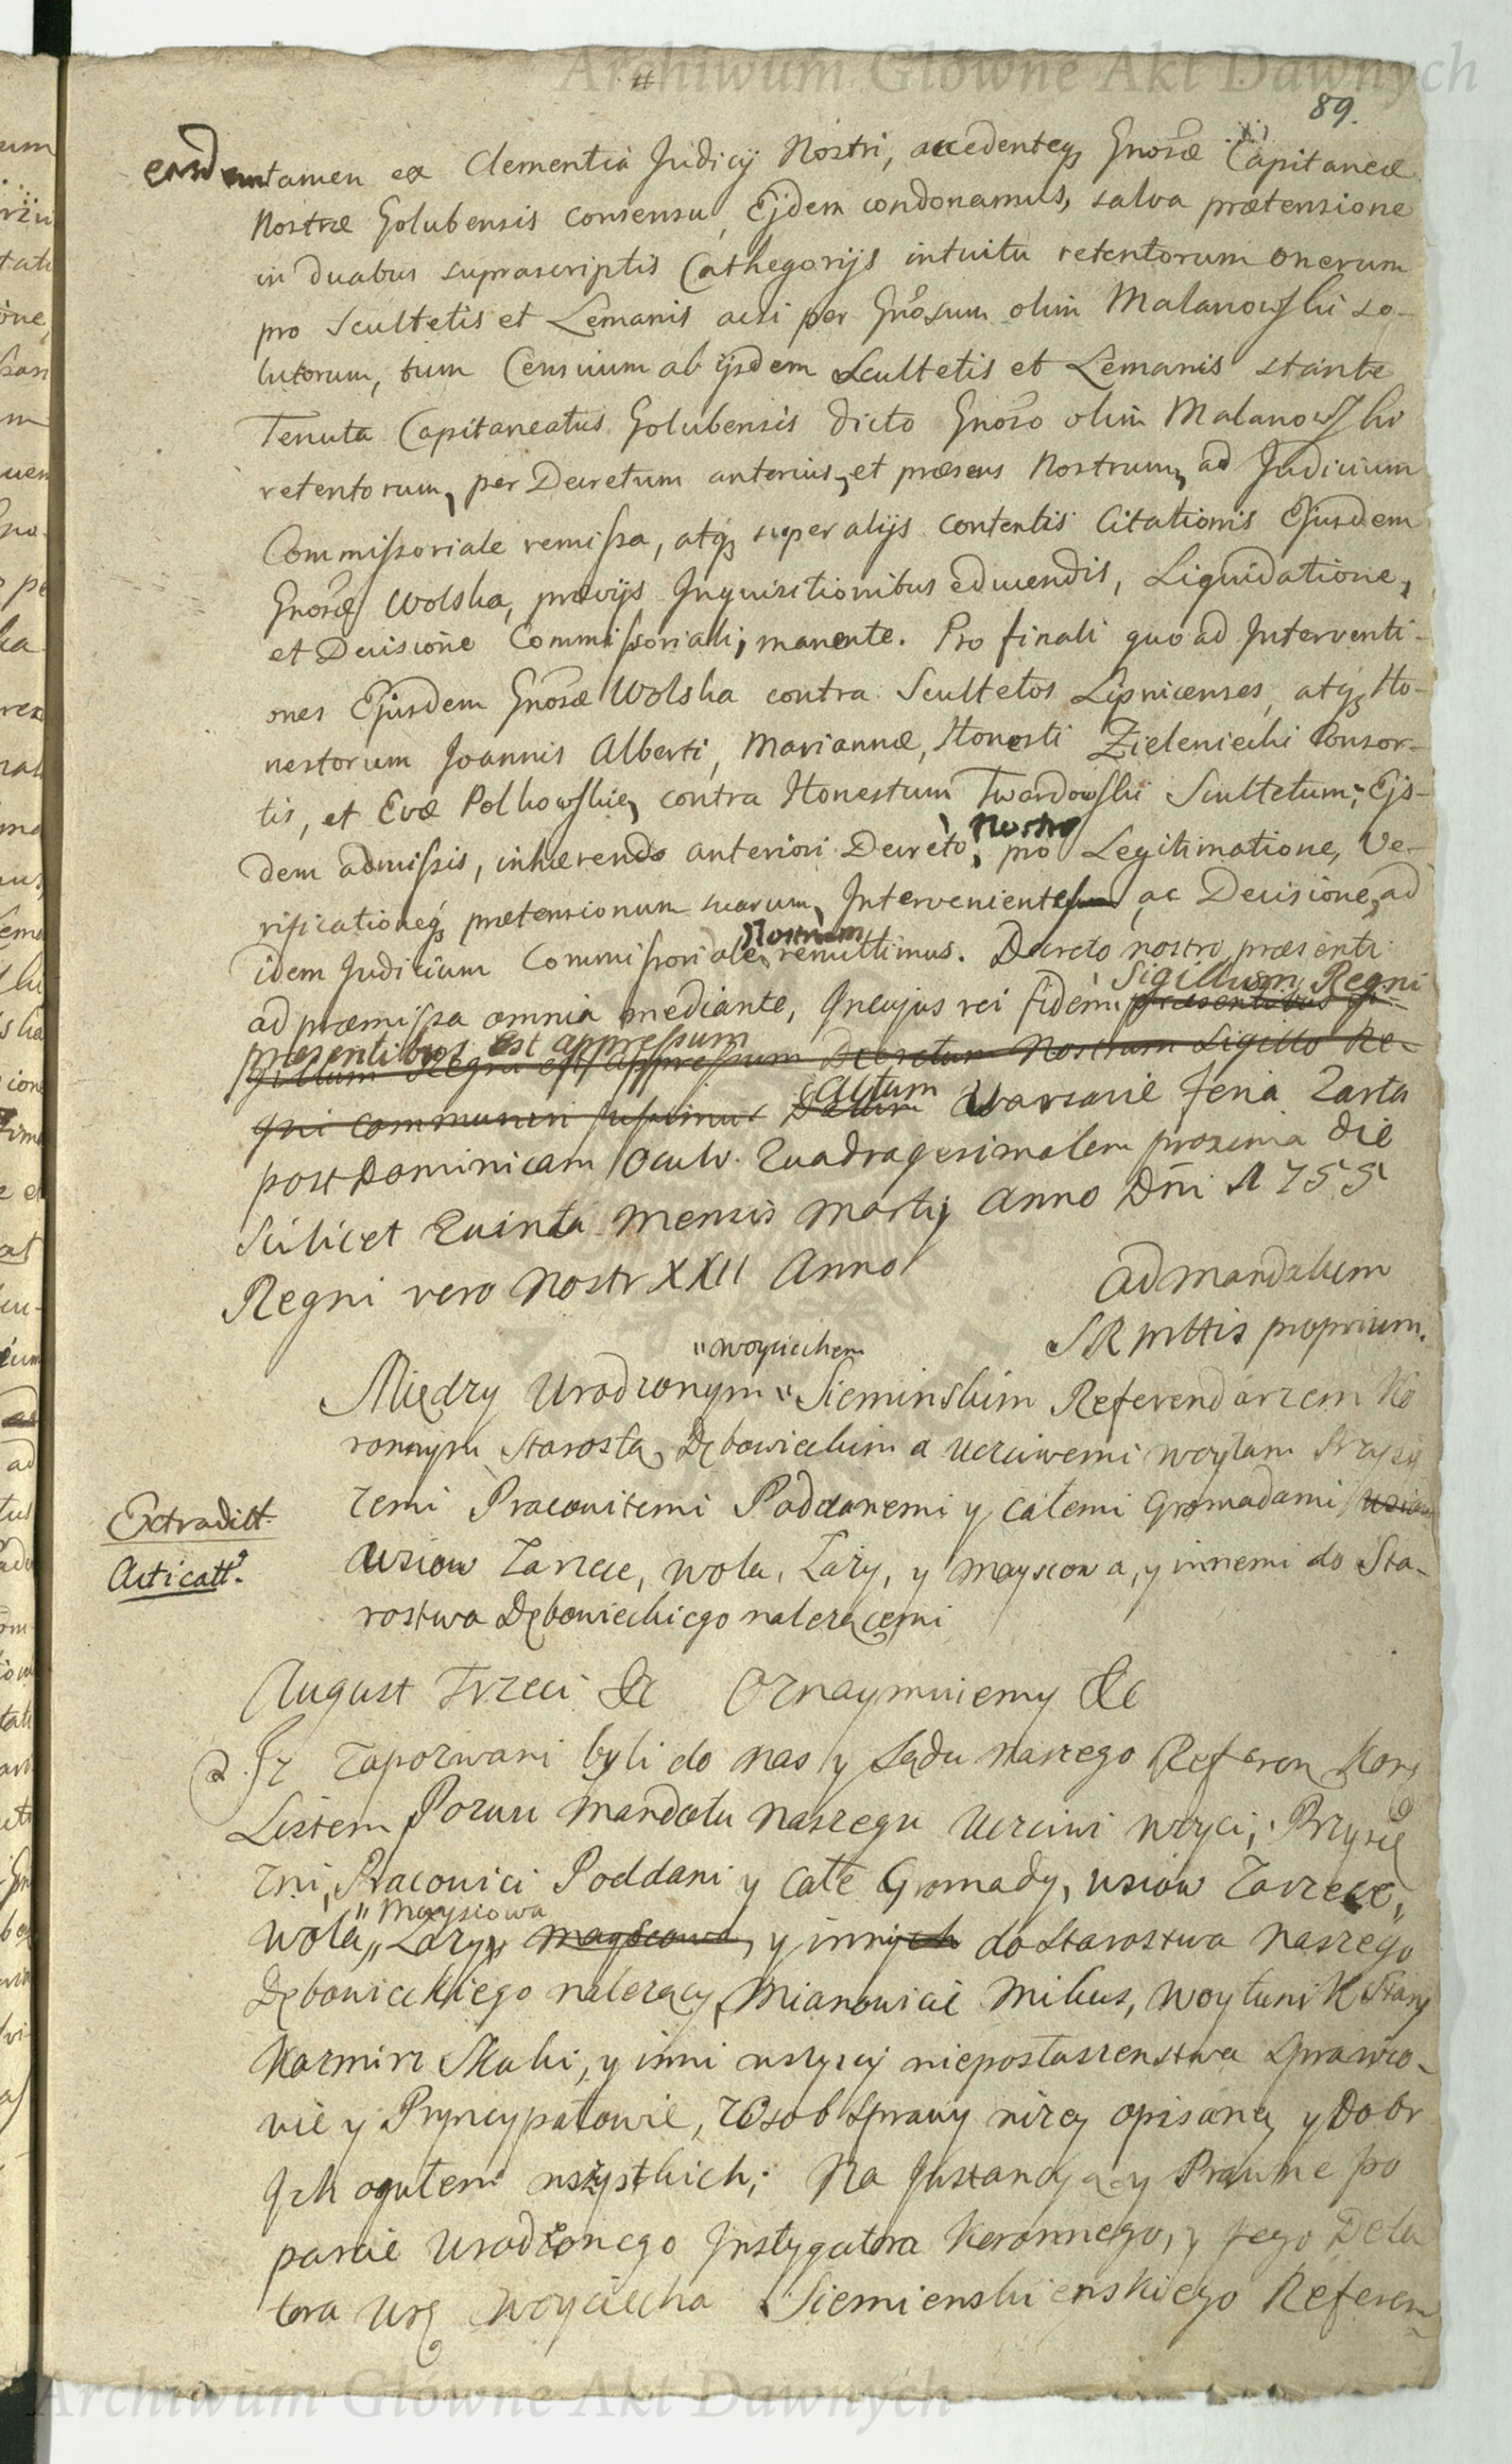 Archiwum Główne Akt Dawnych
#
89.
easdem tamen ex Clementia Judicij Nostri, accedenteq; Gnosæ Capitaneæ
Nostræ Golubensis consensu, Ejdem condonamus, salva prætensione
in duabus suprascriptis Cathegorijs intuitu retentorum onerum
pro Scultetis et Lemanis acsi per Gnosum olim Malanowski so-
lutorum, tum Censuum ab ijsdem Scultetis et Lemanis stante
Tenuta Capitaneatus Golubensis dicto Gnoso olim Malanowski
retentorum, per Decretum anterius, et præsens Nostrum, ad Judicium
Commissoriale remissa, atq; super alijs contentis Citationis Ejusdem
Gnosæ Wolska, prævijs Inquisitionibus educendis, Liquidatione,
et Decisione Commissoriali, manente. Pro finali quo ad Interventi-
ones Ejusdem Gnosæ Wolska contra Scultetos Lipnicenses, atq; Ho-
nestorum Joannis Alberti, Mariannæ, Honesti Zieleniecki Consor-
tis, et Evæ Polkowskie, contra Honestum Twardowski Scultetum; Ejs-
dem admissis, inhærendo anteriori Decreto, Nostro pro Legitimatione, Ve-
rificationeq; prætensionum suarum, Intervenient ac Decisione, ad
idem Judicium Commissoriale Nostrum remittimus. Decreto nostro præsenti
ad præmissa omnia mediante, In cujus rei fidem præsentibus Si- Sigillum Regni
præsentibus est appressum
gillum Regni est appressum Decretum Nostrum Sigillo Re-
gni communiri jussimus Datum Actum Warsavie Feria Zarta
post Dominicam Oculi Quadragesimalem proxima die
Scilicet Quinta Mensis Martij Anno Dñi 1755
Regni vero Nostr XXII Anno
Ad mandatum
SRMttis proprium.
Między Urodzonym " Woyciechem Sieminskim Referendarzem Ko
ronnym Starostą Dębowieckim a Uczciwemi Woytam Przysię
żemi Pracowitemi Poddanemi y całemi Gromadami
Extradill.
Wsiow Zarzcie, Wola, Łazy, y Mayscowa, y innemi do Sta-
Acticatt.
rostwa Dębowieckiego należącemi
August Trzeci &c Oznaymuiemy &c
Iż Zapozwani byli do nas y Sądu naszego Referen Kor
Listem Pozwu Mandatu Naszego Uczciwi Woyci, Przysię
żni, Pracowici Poddani y całe Gromady, wsiow Zarzece,
Wola, " Maysiowa Łazy, Mayscowa, y innych do Starostwa Naszego
Dębowieckiego należący, Mianowicie Mikus, Woytuni K Stany
Kazmirz Skaki, y inni wszyscy nieposłuszenstwa Sprawco-
wie y Pryncypałowie, z Osob Sprawy niżey opisaney y Dobr
Ich ogułem wszystkich; Na Instancyą y Prawne po
parcie Urodzonego Instygatora Koronnego, y Jego Dela
tora Urę Woyciecha Siemienskienskiego Referen
Archiwum Główne Akt Dawnych